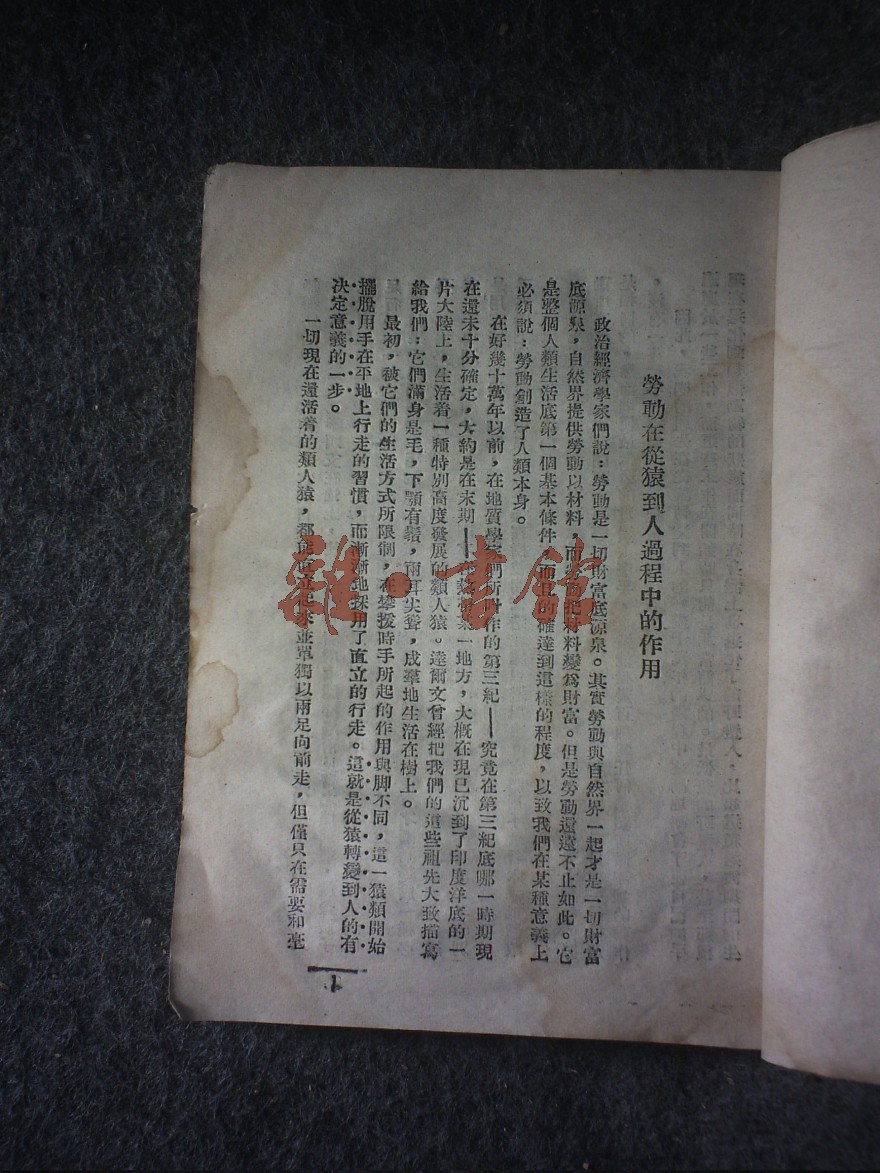 勞動在從猿到人過程中的作用
政治經濟學家們說：勞動是一切財富底源泉。其實勞動與自然界一起才是一切財富
底源泉，自然界提供勞動以材料，而勞動把材料變爲財富。但是勞動還遠不止如此。它
是整個人類生活底第一個基本條件，而且的確達到這樣的程度，以致我們在某種意義上
必須說：勞動創造了人類本身。
在好幾十萬年以前，在地質學家們所叫作的第三紀——究竟在第三紀底哪一時期現
在還未十分確定，大約是在末期——在熱帶某一地方，大概在現已沉到了印度洋底的一
片大陸上，生活着一種特別高度發展的類人猿。達爾文曾經把我們的這些祖先大致描寫
給我們：它們滿身是毛，下顎有鬚，兩耳尖聳，成羣地生活在樹上。
最初，被它們的生活方式所限制，在攀援時手所起的作用與脚不同，這一猿類開始
擺脫用手在平地上行走的習慣，而漸漸地採用了直立的行走。這就是從猿轉變到人的有
決定意義的一步。
一切現在還活着的類人猿，都能直立起來並單獨以兩足向前走，但僅只在需要和毫
1
雜·書館